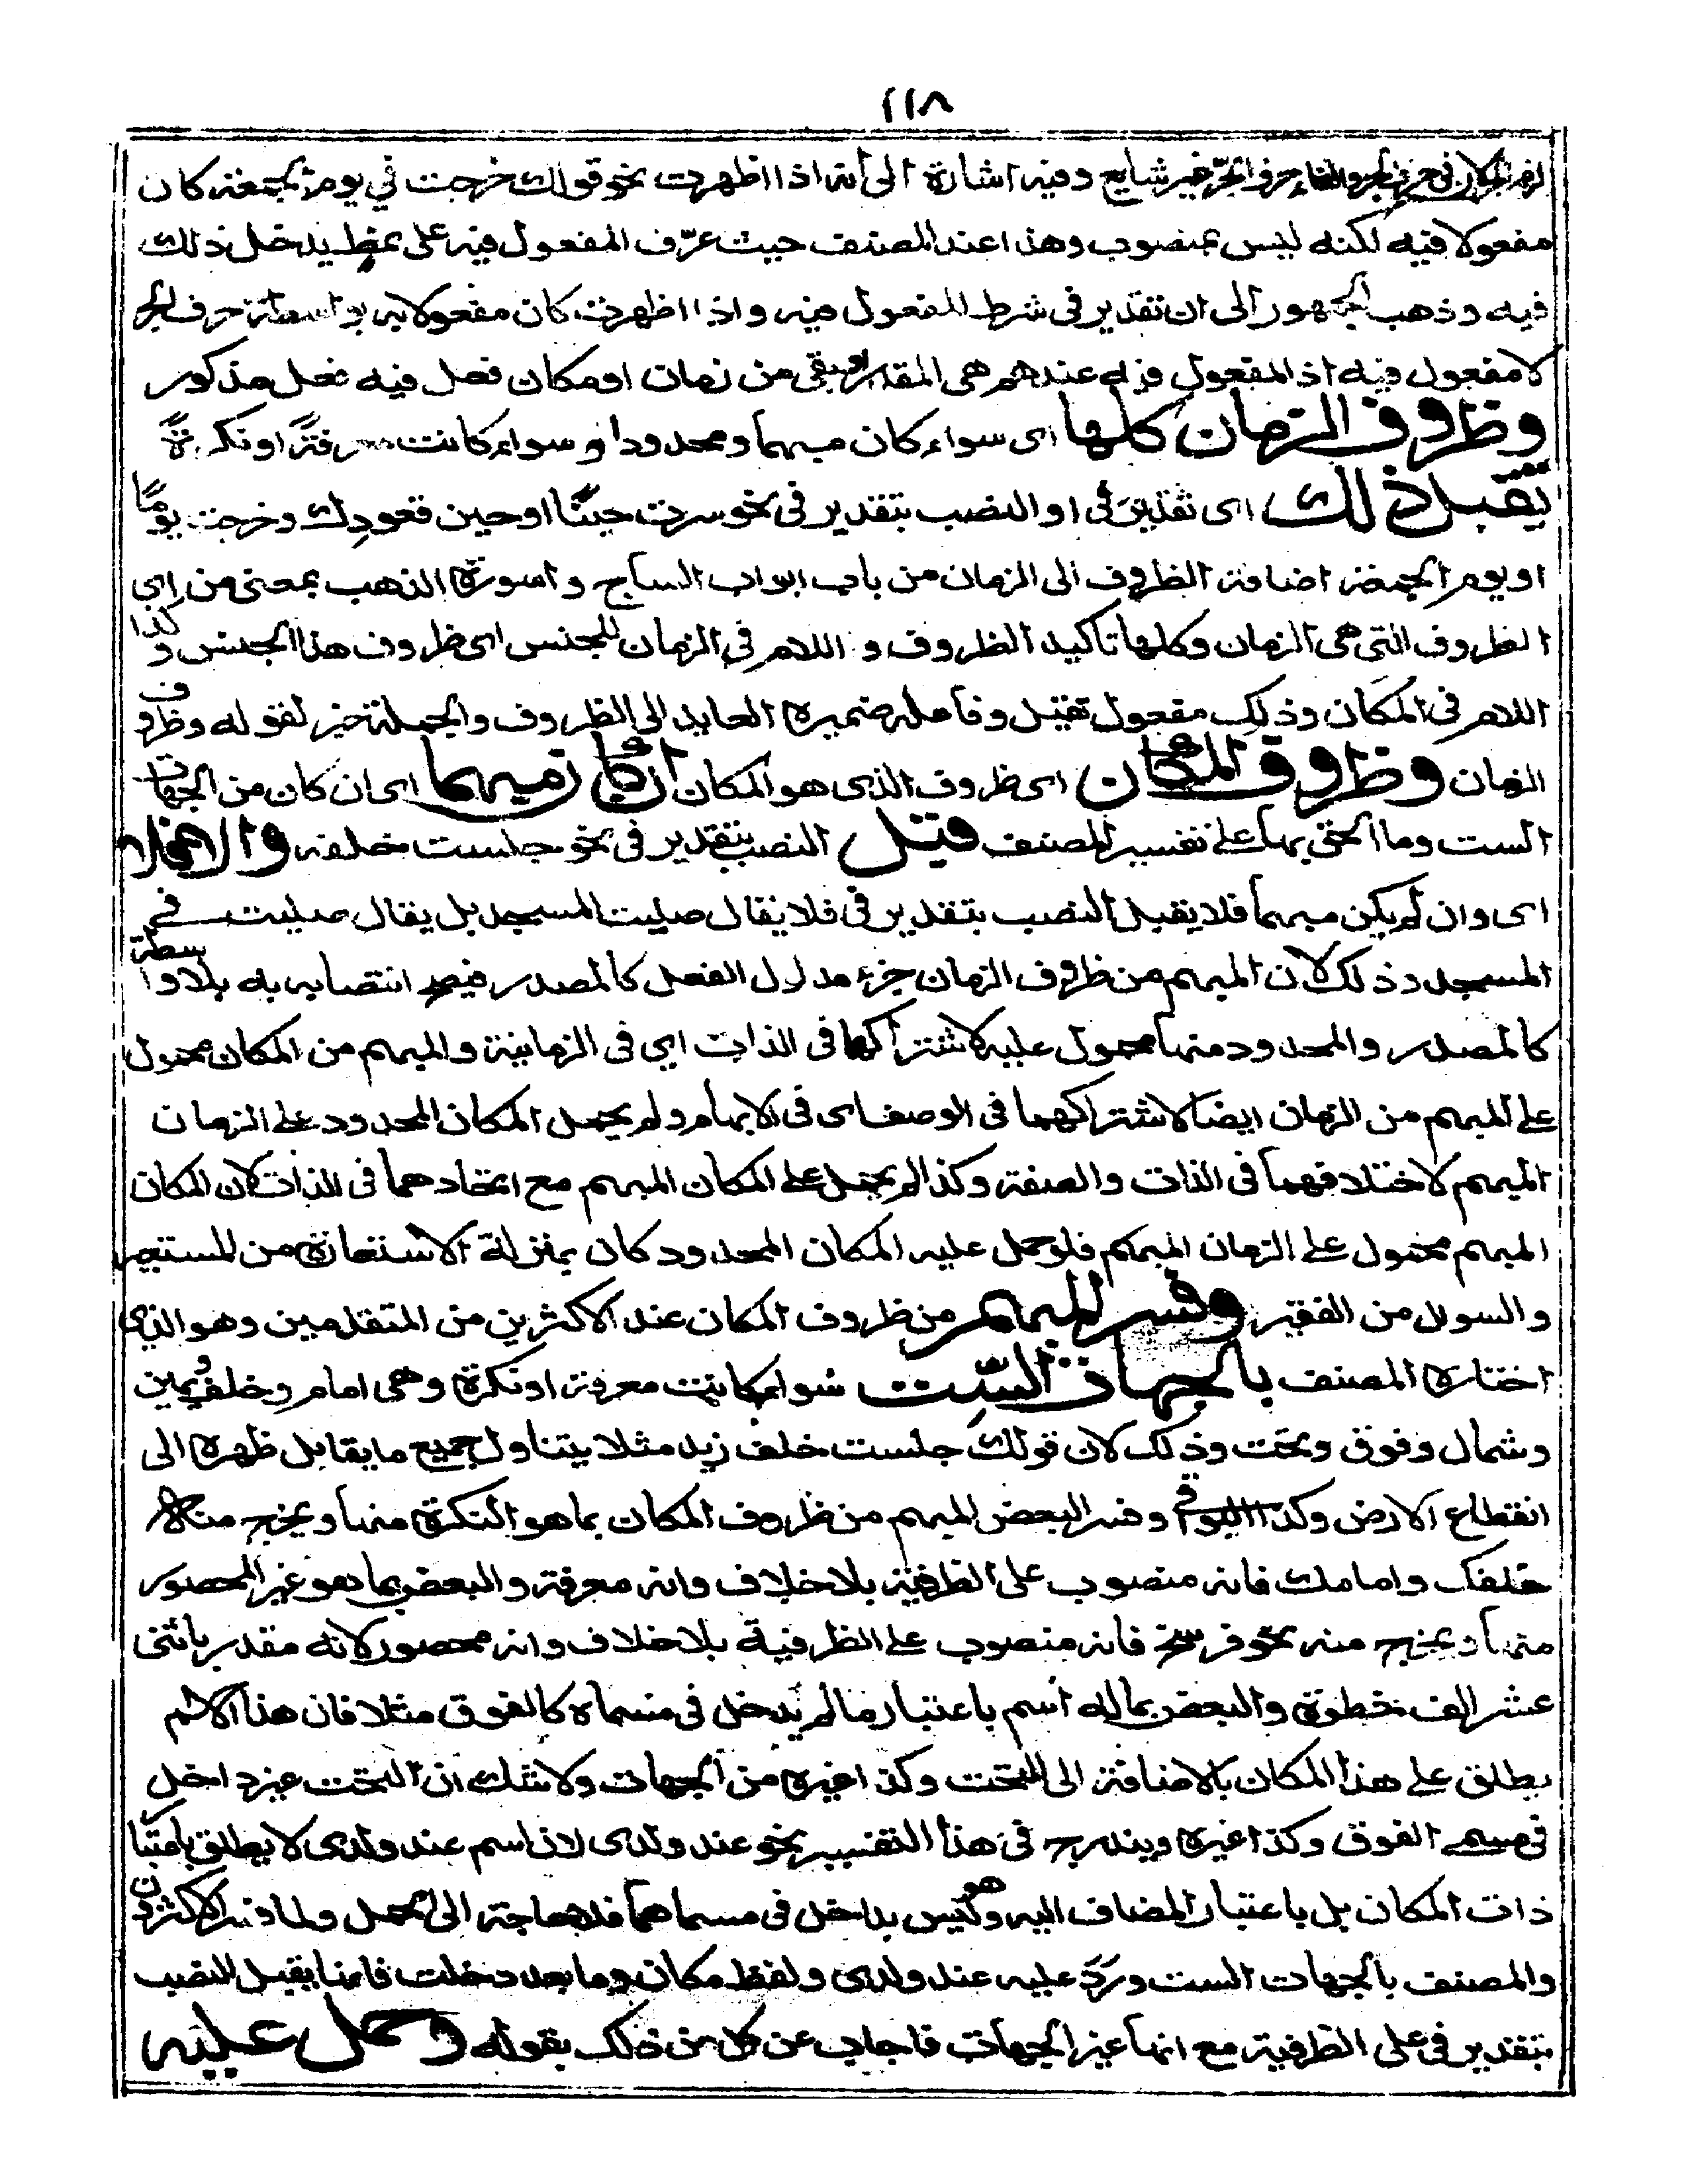 ١١٨
غير شايع وفيه اشارة الى أنه اذا اظهرت نحو قولك خرجت في يوم الجمعة كان
مفعولا فيه لكنه ليس بمنصوب وهذا عند المصنف حيث عرّف المفعول فيه على نمط يدخل ذلك
فيه وذهب الجمهور الى ان تقدير فى شرط المفعول فيه واذا اظهرت كان مفعولا به بواسطة حرف الجر
لا مفعول فيه اذ المفعول فيه عندهم هى المقدر بفى من زمان او مكان فعل فيه فعل مذكور
وظروف الزمان كلها اى سواء كان مبهما ومحدودا وسواء كانت معرفة او نكرة
يقبل ذلك اى تقدير فى او النصب بتقدير فى نحو سرت حينًا او حين قعودك وخرجت يومًا
او يوم الجمعة اضافة الظروف الى الزمان من باب ابواب الساج واسورة الذهب بمعنى من اى
الظروف التى هى الزمان وكلها تاكيد الظروف و اللام فى الزمان للجنس اى ظروف هذا الجنس وكذا
اللام فى المكان وذلك مفعول تقبل وفاعله ضميره العايد الى الظروف والجملة خبر لقوله وظروف
الزمان وظروف المكان اى ظروف الذى هو المكان ان كان مبهما اى ان كان من الجهات
الست وما الحق بها على تفسير المصنف قبل النصب بتقدير فى نحو جلست خلفه والا فلا
اى وان لم يكن مبهما فلا يقبل النصب بتقدير فى فلا يقال صليت المسجد بل يقال صليت فى
المسجد وذلك لان المبهم من ظروف الزمان جزء مدلول الفعل كالمصدر فيصح انتصابه به بلا واسطة
كالمصدر والمحدود منها محمول عليه لاشتراكهما فى الذات اى فى الزمانية والمبهم من المكان محمول
على المبهم من الزمان ايضا لاشتراكهما فى الوصف اى فى الابهام ولم يحمل المكان المحدود على الزمان
المبهم لاختلافهما فى الذات والصفة وكذا لم يحمل على المكان المبهم مع اتحادهما فى الذات لان المكان
المبهم محمول على الزمان المبهم فلو حمل عليه المكان المحدود كان بمنزلة الاستعارة من المستعير
والسوال من الفقير وفسر المبهم من ظروف المكان عند الاكثرين من المتقدمين وهو الذى
اختاره المصنف بالجهات الست سواء كانت معرفة او نكرة وهى امام وخلف ويمين
وشمال وفوق وتحت وذلك لان قولك جلست خلف زيد مثلا يتناول جميع ما يقابل ظهره الى
انقطاع الارض وكذا البواقى وفسر البعض المبهم من ظروف المكان بما هو النكرة منها ويخرج منه
خلفك وامامك فانه منصوب على الظرفية بلا خلاف وانه معرفة والبعض بما هو غير المحصور
منها ويخرج منه نحو فرسخ فانه منصوب على الظرفية بلا خلاف وانه محصور لانه مقدر باثنى
عشر الف خطوة والبعض بما له اسم باعتبار ما لم يدخل فى مسماه كالفوق مثلا فان هذا الاسم
يطلق على هذا المكان بالاضافة الى التحت وكذا غيره من الجهات ولا شك ان التحت غير داخل
فى مسمى الفوق وكذا غيره ويندرج فى هذا التفسير نحو عند ولدى لان اسم عند ولدى لا يطلق باعتبار
ذات المكان بل باعتبار المضاف اليه وهو ليس بداخل فى مسماهما فلا حاجة الى الحمل ولما فسر الاكثرون
والمصنف بالجهات الست ورد عليه عند ولدى ولفظ مكان وما بعد دخلت فانها يقبل النصب
بتقدير فى على الظرفية مع انها غير الجهات فاجاب عن كل من ذلك بقوله وحمل عليه